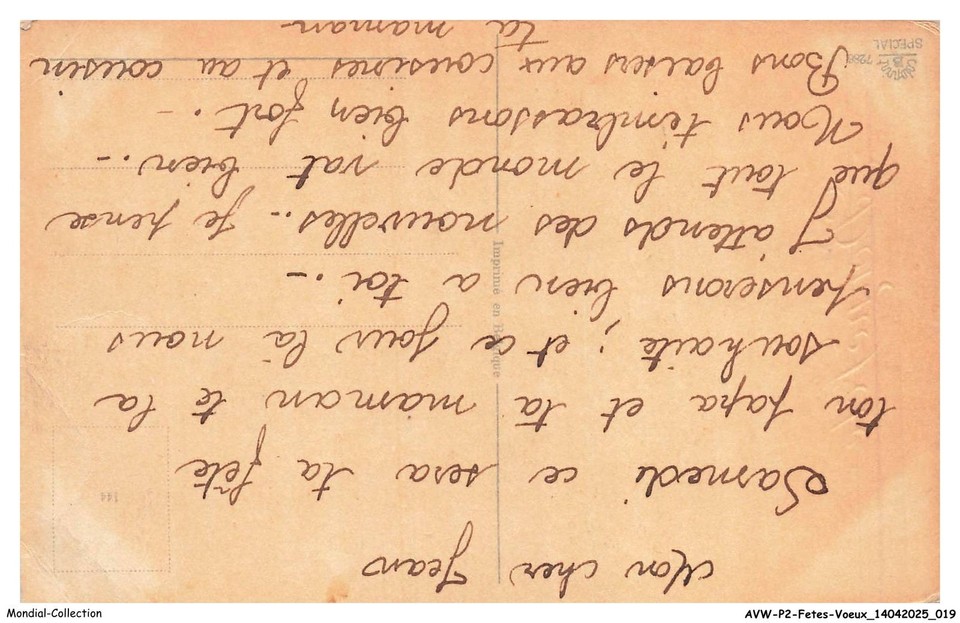 Mon cher Jean
Samedi ce sera ta fête
ton papa et ta maman te la
souhaite, et ce jour là nous
penserons bien a toi.-
J'attends des nouvelles.. Je pense
que tout le monde vat bien.-
Nous t'embrassons bien fort.-
Bons baisers aux cousines et au cousin
ta maman
144
Imprimé en Belgique
SPECIAL
Mondial-Collection
AVW-P2-Fetes-Voeux_14042025_019